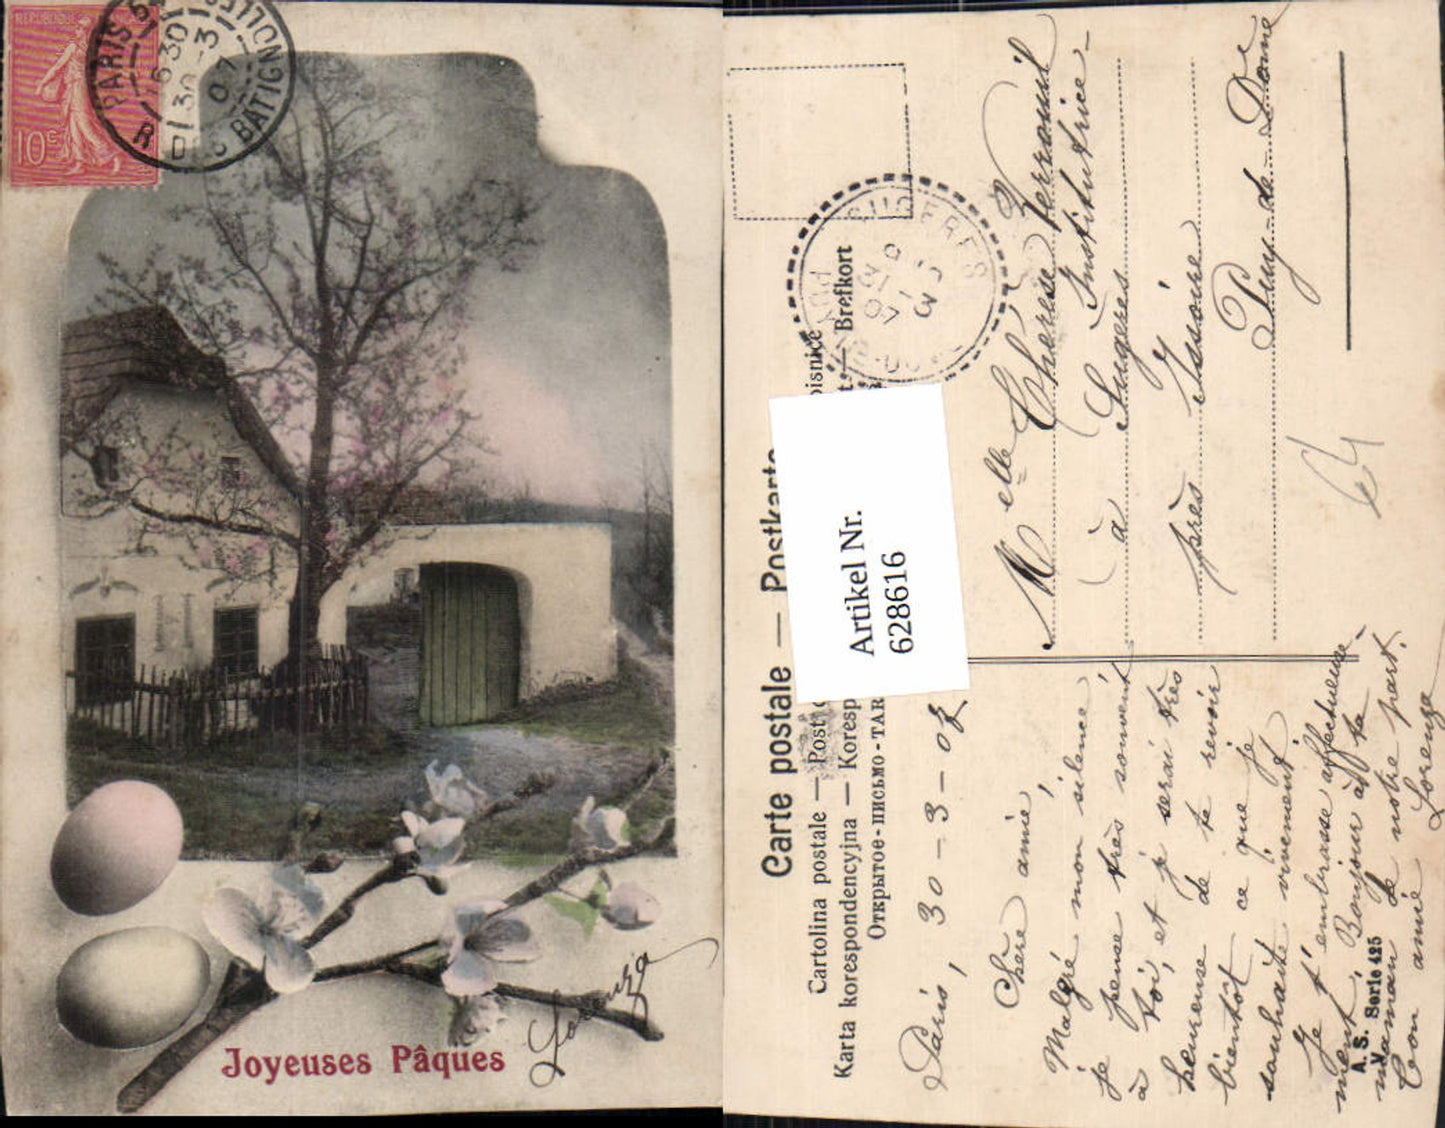 REPUBLIQUE FRANÇAISE
10c
PARIS
6 30
30 - 3
07
R. DES BATIGNOLLES
Joyeuses Pâques
Lorenza
Carte postale — Postkarte
Cartolina postale — Post
Karta korespondencyjna — Koresp
Brefkort
Открытое-письмо - TAR
Artikel Nr.
628616
SUGERES
Melle Thérèse Verronil
Institutrice
à Sugères
près Issoire
Puy-de-Dome
Paris, 30-3-07
Chère amie,
Malgré mon silence
je pense très souvent
à toi, et je serai très
heureuse de te revoir
bientôt ce que je
souhaite vivement
Je t'embrasse affectueuse-
ment, Bonjour à ta
maman de notre part.
Ton amie Lorenza
A. S. Serie 425